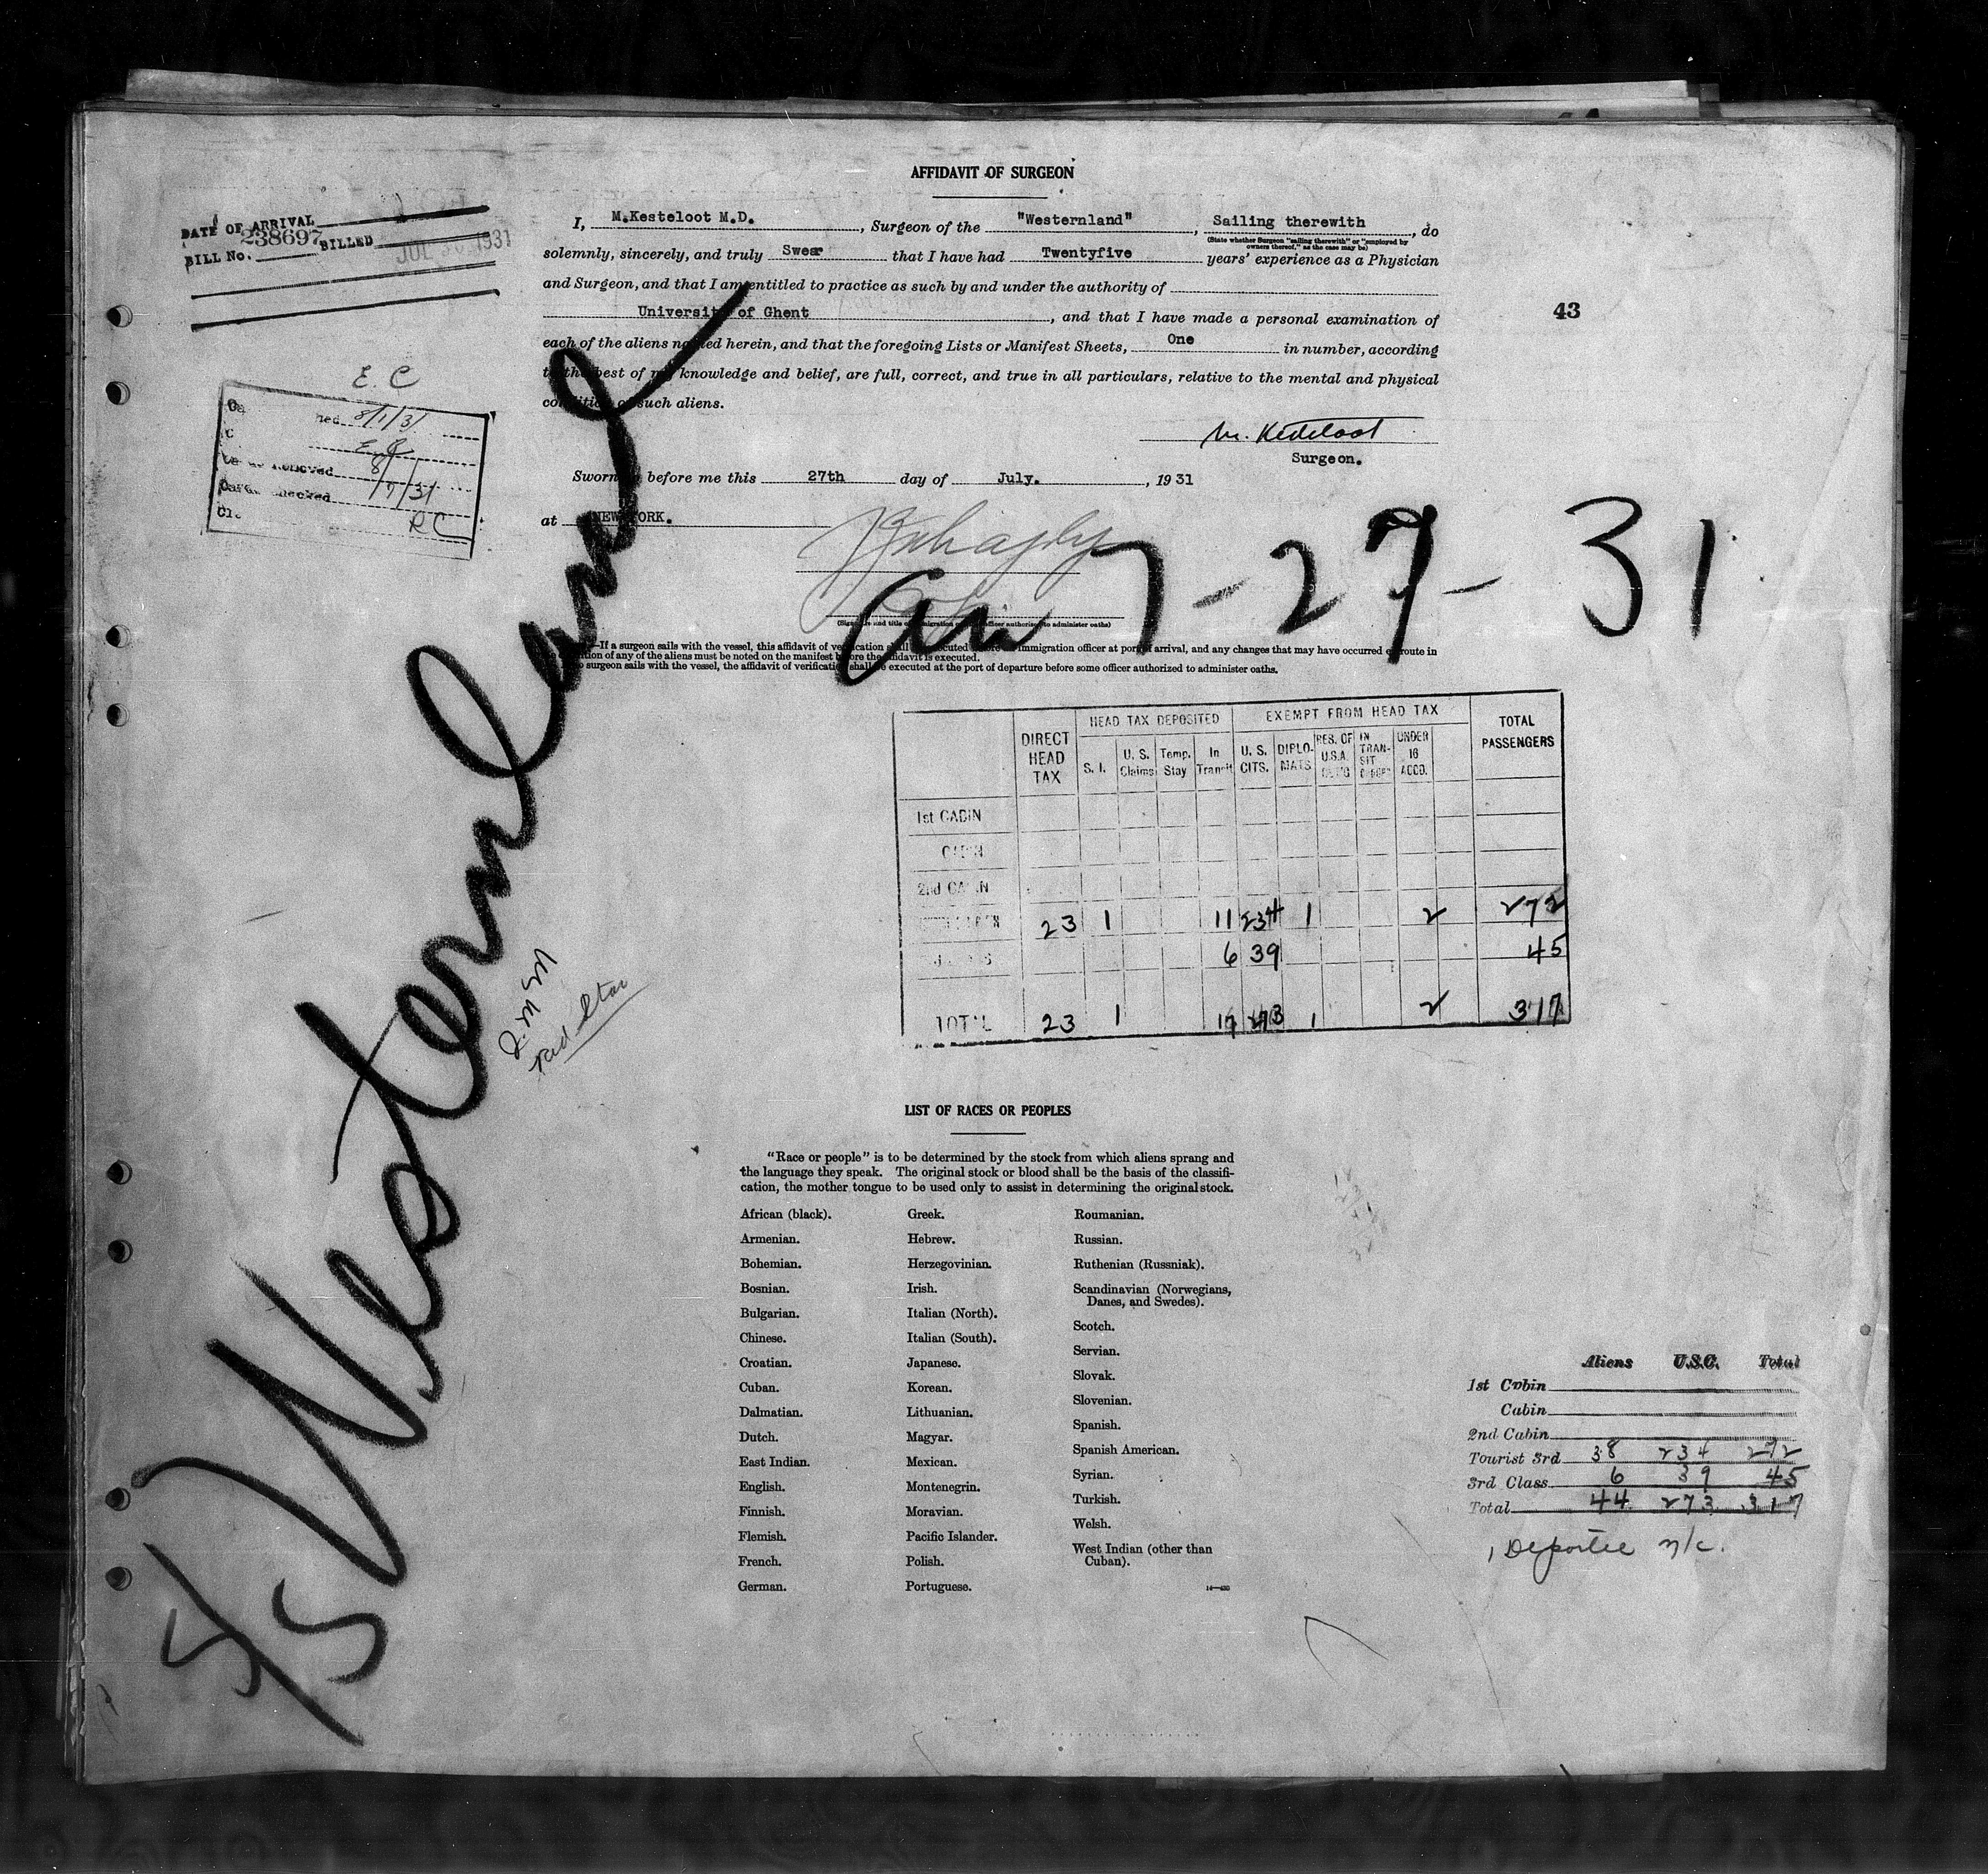 AFFIDAVIT OF SURGEON
DATE OF ARRIVAL
BILL No. 238697 BILLED JUL 30 1931
I, M.Kesteloot M.D., Surgeon of the "Westernland", Sailing therewith, do
(State whether Surgeon "sailing therewith" or "employed by
owners thereof," as the case may be)
solemnly, sincerely, and truly Swear that I have had Twentyfive years' experience as a Physician
and Surgeon, and that I am entitled to practice as such by and under the authority of
University of Ghent, and that I have made a personal examination of
each of the aliens named herein, and that the foregoing Lists or Manifest Sheets, One in number, according
to the best of my knowledge and belief, are full, correct, and true in all particulars, relative to the mental and physical
condition of such aliens.
43
E. C
8/1/31
Removed 8/
Cards checked 1/7/31
RC
M. Kesteloot
Surgeon.
Sworn before me this 27th day of July., 1931
at NEW YORK.
arr 7-27-31
officer authorized to administer oaths)
—If a surgeon sails with the vessel, this affidavit of verification shall be executed before immigration officer at port of arrival, and any changes that may have occurred en route in
condition of any of the aliens must be noted on the manifest before the affidavit is executed.
no surgeon sails with the vessel, the affidavit of verification shall be executed at the port of departure before some officer authorized to administer oaths.
Westernland
Red Star
5/5
DIRECT HEAD TAX HEAD TAX DEPOSITED EXEMPT FROM HEAD TAX TOTAL PASSENGERS
S. I. U. S. Claims Temp. Stay In Transit U. S. CITS. DIPLOMATS RES. OF U.S.A. IN TRANSIT UNDER 16 ACCD.
1st CABIN
CABIN
2nd CABIN
23 1 11 234 1 2 272
6 39 45
TOTAL 23 1 17 273 1 2 317
LIST OF RACES OR PEOPLES
"Race or people" is to be determined by the stock from which aliens sprang and
the language they speak. The original stock or blood shall be the basis of the classifi-
cation, the mother tongue to be used only to assist in determining the original stock.
African (black).
Armenian.
Bohemian.
Bosnian.
Bulgarian.
Chinese.
Croatian.
Cuban.
Dalmatian.
Dutch.
East Indian.
English.
Finnish.
Flemish.
French.
German.
Greek.
Hebrew.
Herzegovinian.
Irish.
Italian (North).
Italian (South).
Japanese.
Korean.
Lithuanian.
Magyar.
Mexican.
Montenegrin.
Moravian.
Pacific Islander.
Polish.
Portuguese.
Roumanian.
Russian.
Ruthenian (Russniak).
Scandinavian (Norwegians,
Danes, and Swedes).
Scotch.
Servian.
Slovak.
Slovenian.
Spanish.
Spanish American.
Syrian.
Turkish.
Welsh.
West Indian (other than
Cuban).
Aliens U.S.C. Total
1st Cabin
Cabin
2nd Cabin
Tourist 3rd 38 234 272
3rd Class 6 39 45
Total 44 273 317
1 Deportee n/c.